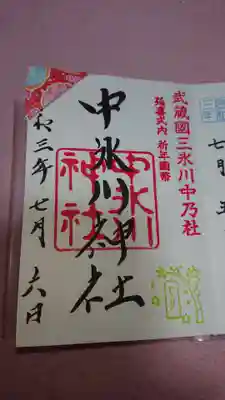 武蔵國三氷川中乃社
延喜式内 祈年國幣
中氷川神社
中氷川
神社
和三年七月六日
七月五